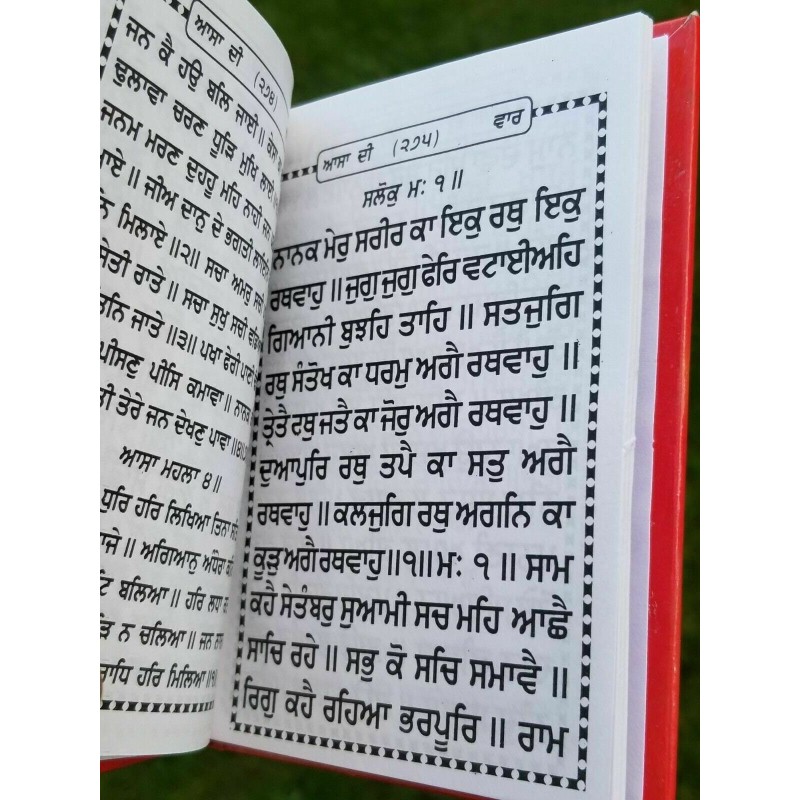 ਆਸਾ ਦੀ (੨੭੪)
ਜਨ ਕੈ ਹਉ ਬਲਿ ਜਾਈ॥
ਢੁਲਾਵਾ ਚਰਣ ਧੂੜਿ ਮੁਖਿ ਲਾਈ
ਜਨਮ ਮਰਣ ਦੁਹਹੂ ਮਹਿ ਨਾਹੀ ਜਨ
ਆਏ॥ ਜੀਅ ਦਾਨੁ ਦੇ ਭਗਤੀ ਲਾਇਨਿ
ਨਿ ਮਿਲਾਏ॥੨॥ ਸਚਾ ਅਮਰੁ ਸਚੀ
ਸੇਤੀ ਰਾਤੇ॥ ਸਚਾ ਸੁਖੁ ਸਚੀ
ਨਿ ਜਾਤੇ॥੩॥ ਪਖਾ ਫੇਰੀ ਪਾਣੀ
ਪੀਸਣੁ ਪੀਸਿ ਕਮਾਵਾ॥ ਨਾਨਕ
ਤੀ ਤੇਰੇ ਜਨ ਦੇਖਣੁ ਪਾਵਾ॥੪॥
ਆਸਾ ਮਹਲਾ ੪॥
ਧੁਰਿ ਹਰਿ ਲਿਖਿਆ ਤਿਨਾ
ਾਜੇ॥ ਅਗਿਆਨੁ ਅੰਧੇਰਾ
ਟਿ ਬਲਿਆ॥ ਹਰਿ ਲਧਾ
ੜਿ ਨ ਚਲਿਆ॥ ਜਨ
ਰਾਧਿ ਹਰਿ ਮਿਲਿਆ॥੧॥
ਆਸਾ ਦੀ (੨੭੫) ਵਾਰ
ਸਲੋਕੁ ਮਃ ੧॥
ਨਾਨਕ ਮੇਰੁ ਸਰੀਰ ਕਾ ਇਕੁ ਰਥੁ ਇਕੁ
ਰਥਵਾਹੁ॥ ਜੁਗੁ ਜੁਗੁ ਫੇਰਿ ਵਟਾਈਅਹਿ
ਗਿਆਨੀ ਬੁਝਹਿ ਤਾਹਿ॥ ਸਤਜੁਗਿ
ਰਥੁ ਸੰਤੋਖ ਕਾ ਧਰਮੁ ਅਗੈ ਰਥਵਾਹੁ॥
ਤ੍ਰੇਤੈ ਰਥੁ ਜਤੈ ਕਾ ਜੋਰੁ ਅਗੈ ਰਥਵਾਹੁ॥
ਦੁਆਪੁਰਿ ਰਥੁ ਤਪੈ ਕਾ ਸਤੁ ਅਗੈ
ਰਥਵਾਹੁ॥ ਕਲਜੁਗਿ ਰਥੁ ਅਗਨਿ ਕਾ
ਕੂੜੁ ਅਗੈ ਰਥਵਾਹੁ॥੧॥ ਮਃ ੧॥ ਸਾਮ
ਕਹੈ ਸੇਤੰਬਰੁ ਸੁਆਮੀ ਸਚ ਮਹਿ ਆਛੈ
ਸਾਚਿ ਰਹੇ॥ ਸਭੁ ਕੋ ਸਚਿ ਸਮਾਵੈ॥
ਰਿਗੁ ਕਹੈ ਰਹਿਆ ਭਰਪੂਰਿ॥ ਰਾਮ